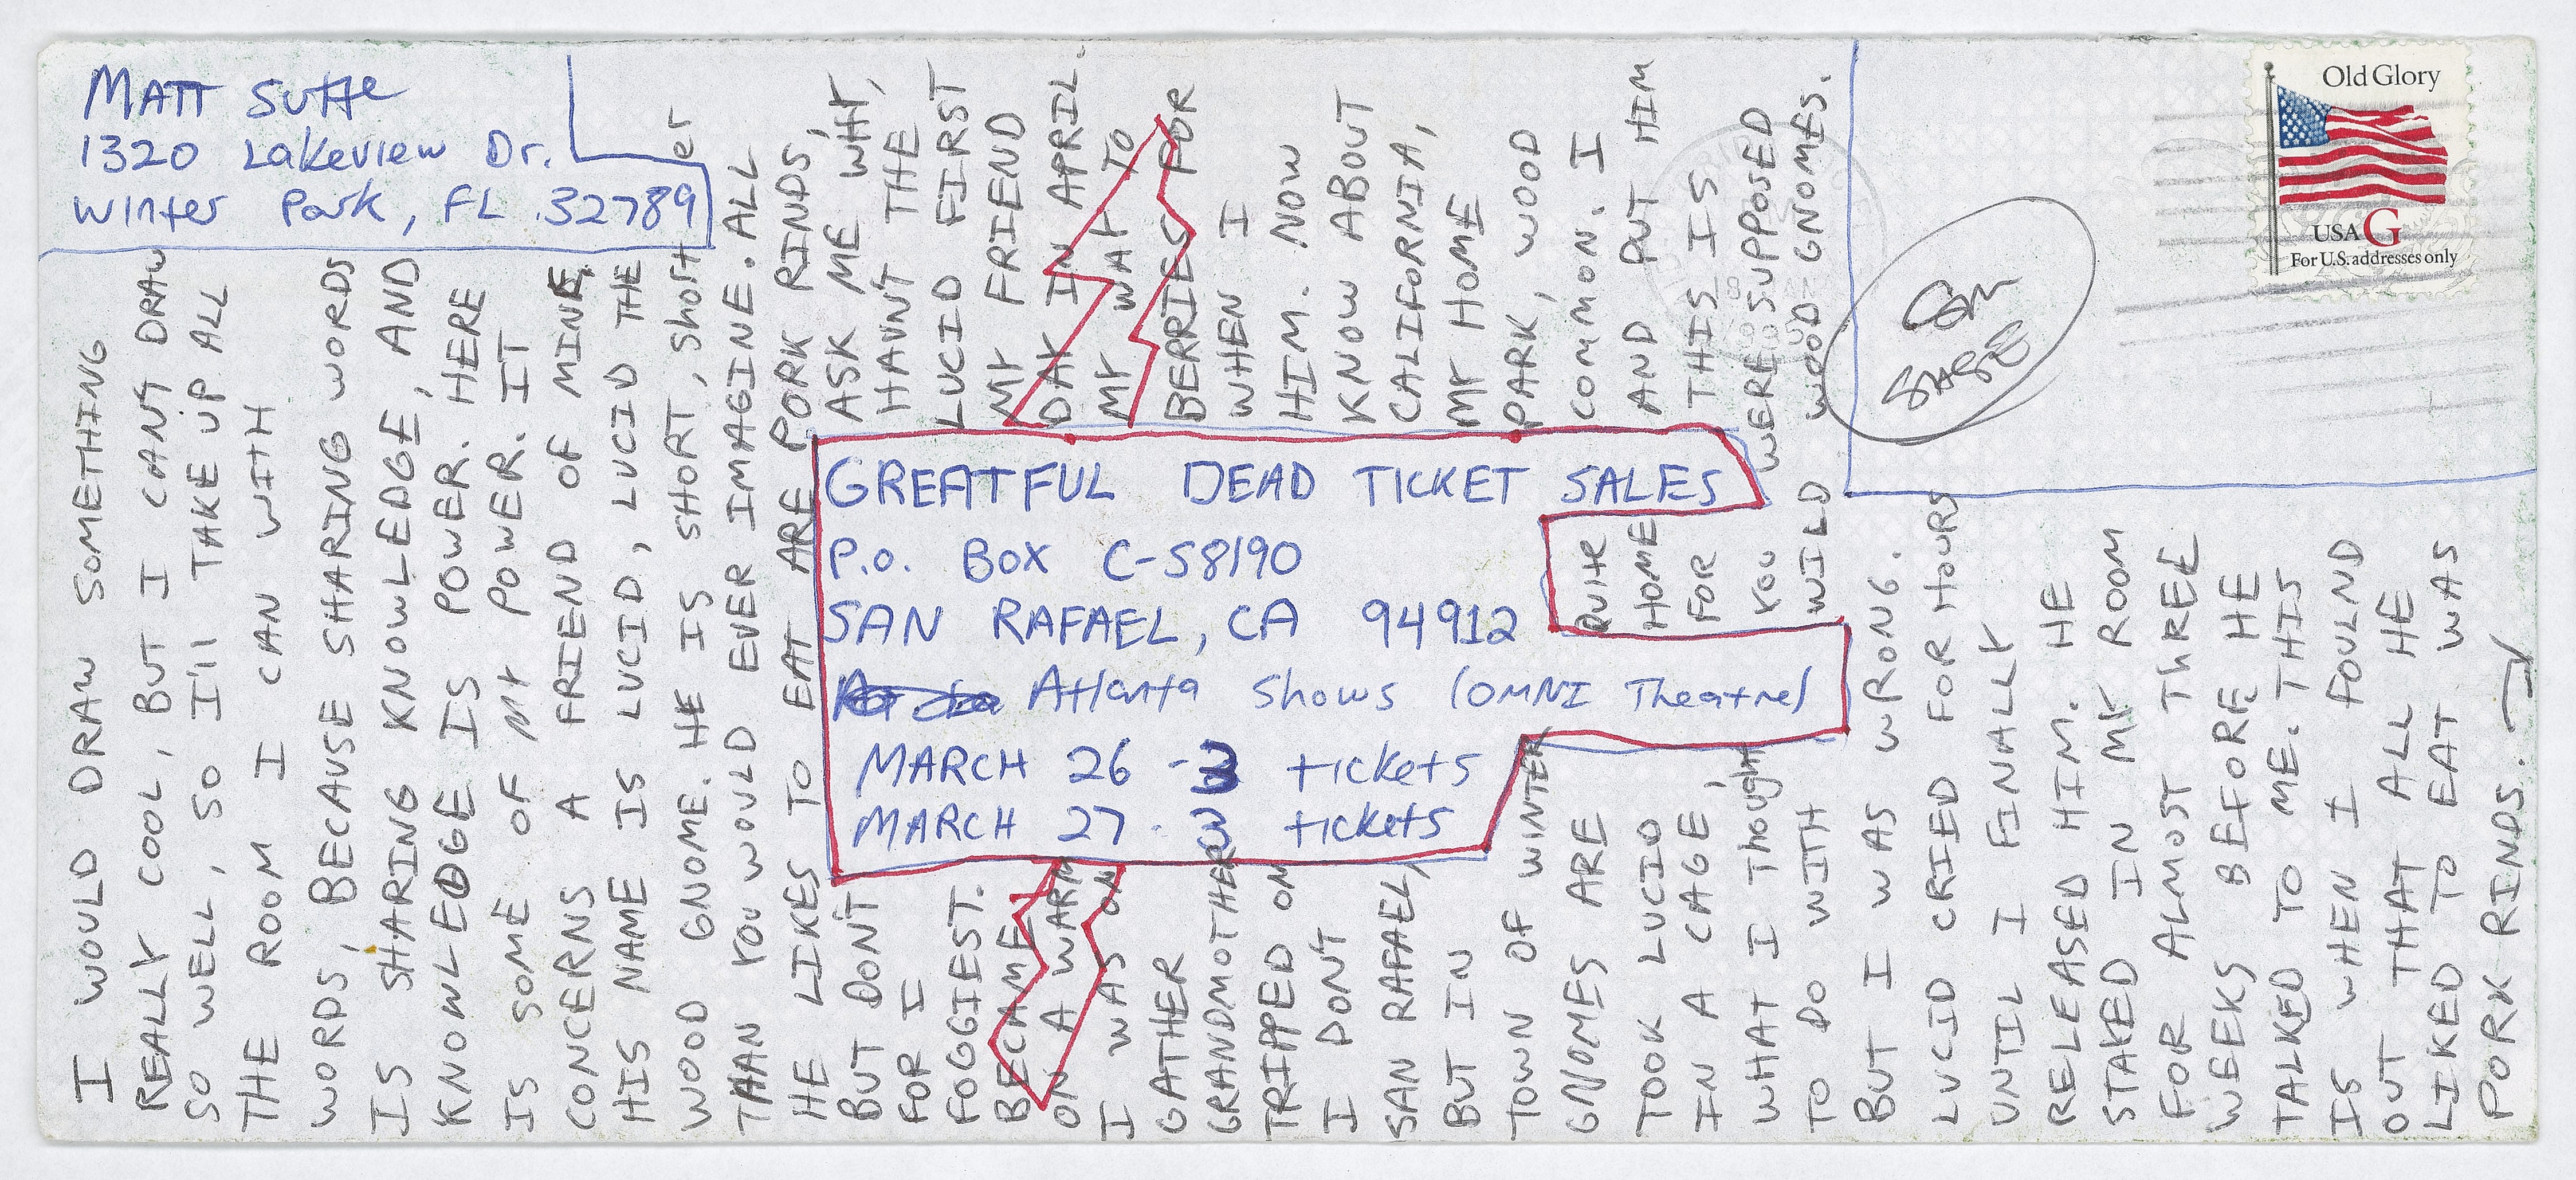 MATT SUTTE
1320 Lakeview Dr.
Winter Park, FL 32789
Old Glory
USA G
For U.S. addresses only
GREATFUL DEAD TICKET SALES
P.O. Box C-58190
SAN RAFAEL, CA 94912
Atlanta Shows (OMNI Theatre)
MARCH 26 - 3 tickets
MARCH 27 - 3 tickets
I WOULD DRAW SOMETHING
REALLY COOL, BUT I CANT DRAW
SO WELL, SO I'll TAKE UP ALL
THE ROOM I CAN WITH
WORDS, BECAUSE SHARING WORDS
IS SHARING KNOWLEDGE, AND
KNOWLEDGE IS POWER. HERE
IS SOME OF MY POWER. IT
CONCERNS A FRIEND OF MINE,
HIS NAME IS LUCID, LUCID THE
WOOD GNOME. HE IS SHORT, short, shorter
THAN YOU WOULD EVER IMAGINE. ALL
HE LIKES TO EAT ARE PORK RINDS,
BUT DON'T ASK ME WHY,
FOR I HAVN'T THE
FOGGIEST. LUCID FIRST
BECAME MY FRIEND
ON A WARM DAY IN APRIL.
I WAS ON MY WAY TO
GATHER BERRIES FOR
GRANDMOTHER WHEN I
TRIPPED ON HIM. NOW
I DON'T KNOW ABOUT
SAN RAFAEL, CALIFORNIA,
BUT IN MY HOME
TOWN OF WINTER PARK, WOOD
GNOMES ARE QUITE COMMON. I
TOOK LUCID HOME AND PUT HIM
IN A CAGE, FOR THIS IS
WHAT I Thought YOU WERE SUPPOSED
TO DO WITH WILD WOOD GNOMES.
BUT I WAS WRONG.
LUCID CRIED FOR HOURS
UNTIL I FINALLY
RELEASED HIM. HE
STAYED IN MY ROOM
FOR ALMOST THREE
WEEKS BEFORE HE
TALKED TO ME. THIS
IS WHEN I FOUND
OUT THAT ALL HE
LIKED TO EAT WAS
PORK RINDS.